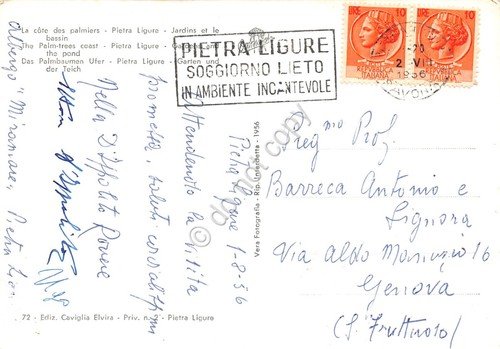 La côte des palmiers - Pietra Ligure - Jardins et le
bassin
The Palm-trees coast - Pietra Ligure - Garden and
the pond
Das Palmbaumen Ufer - Pietra Ligure - Garten und
der Teich
PIETRA LIGURE
SOGGIORNO LIETO
IN AMBIENTE INCANTEVOLE
LIRE 10
LIRE 10
ITALIANA
-20
2 VIII
1956
SAVONA
Attendendo la visita
promessa, saluti cordialissimi
Nella D'Ippolito Rovere
Ettore d'Ippolito
Albergo "Miramare" Pietra Lig
Pietra Ligure 1-8-56
Vera Fotografia - Rip. Interdetta - 1956
Preg mo Prof.
Barreca Antonio e
Signora
Via Aldo Manuzio 16
Genova
(S. Fruttuoso)
72 - Ediz. Caviglia Elvira - Priv. n. - Pietra Ligure